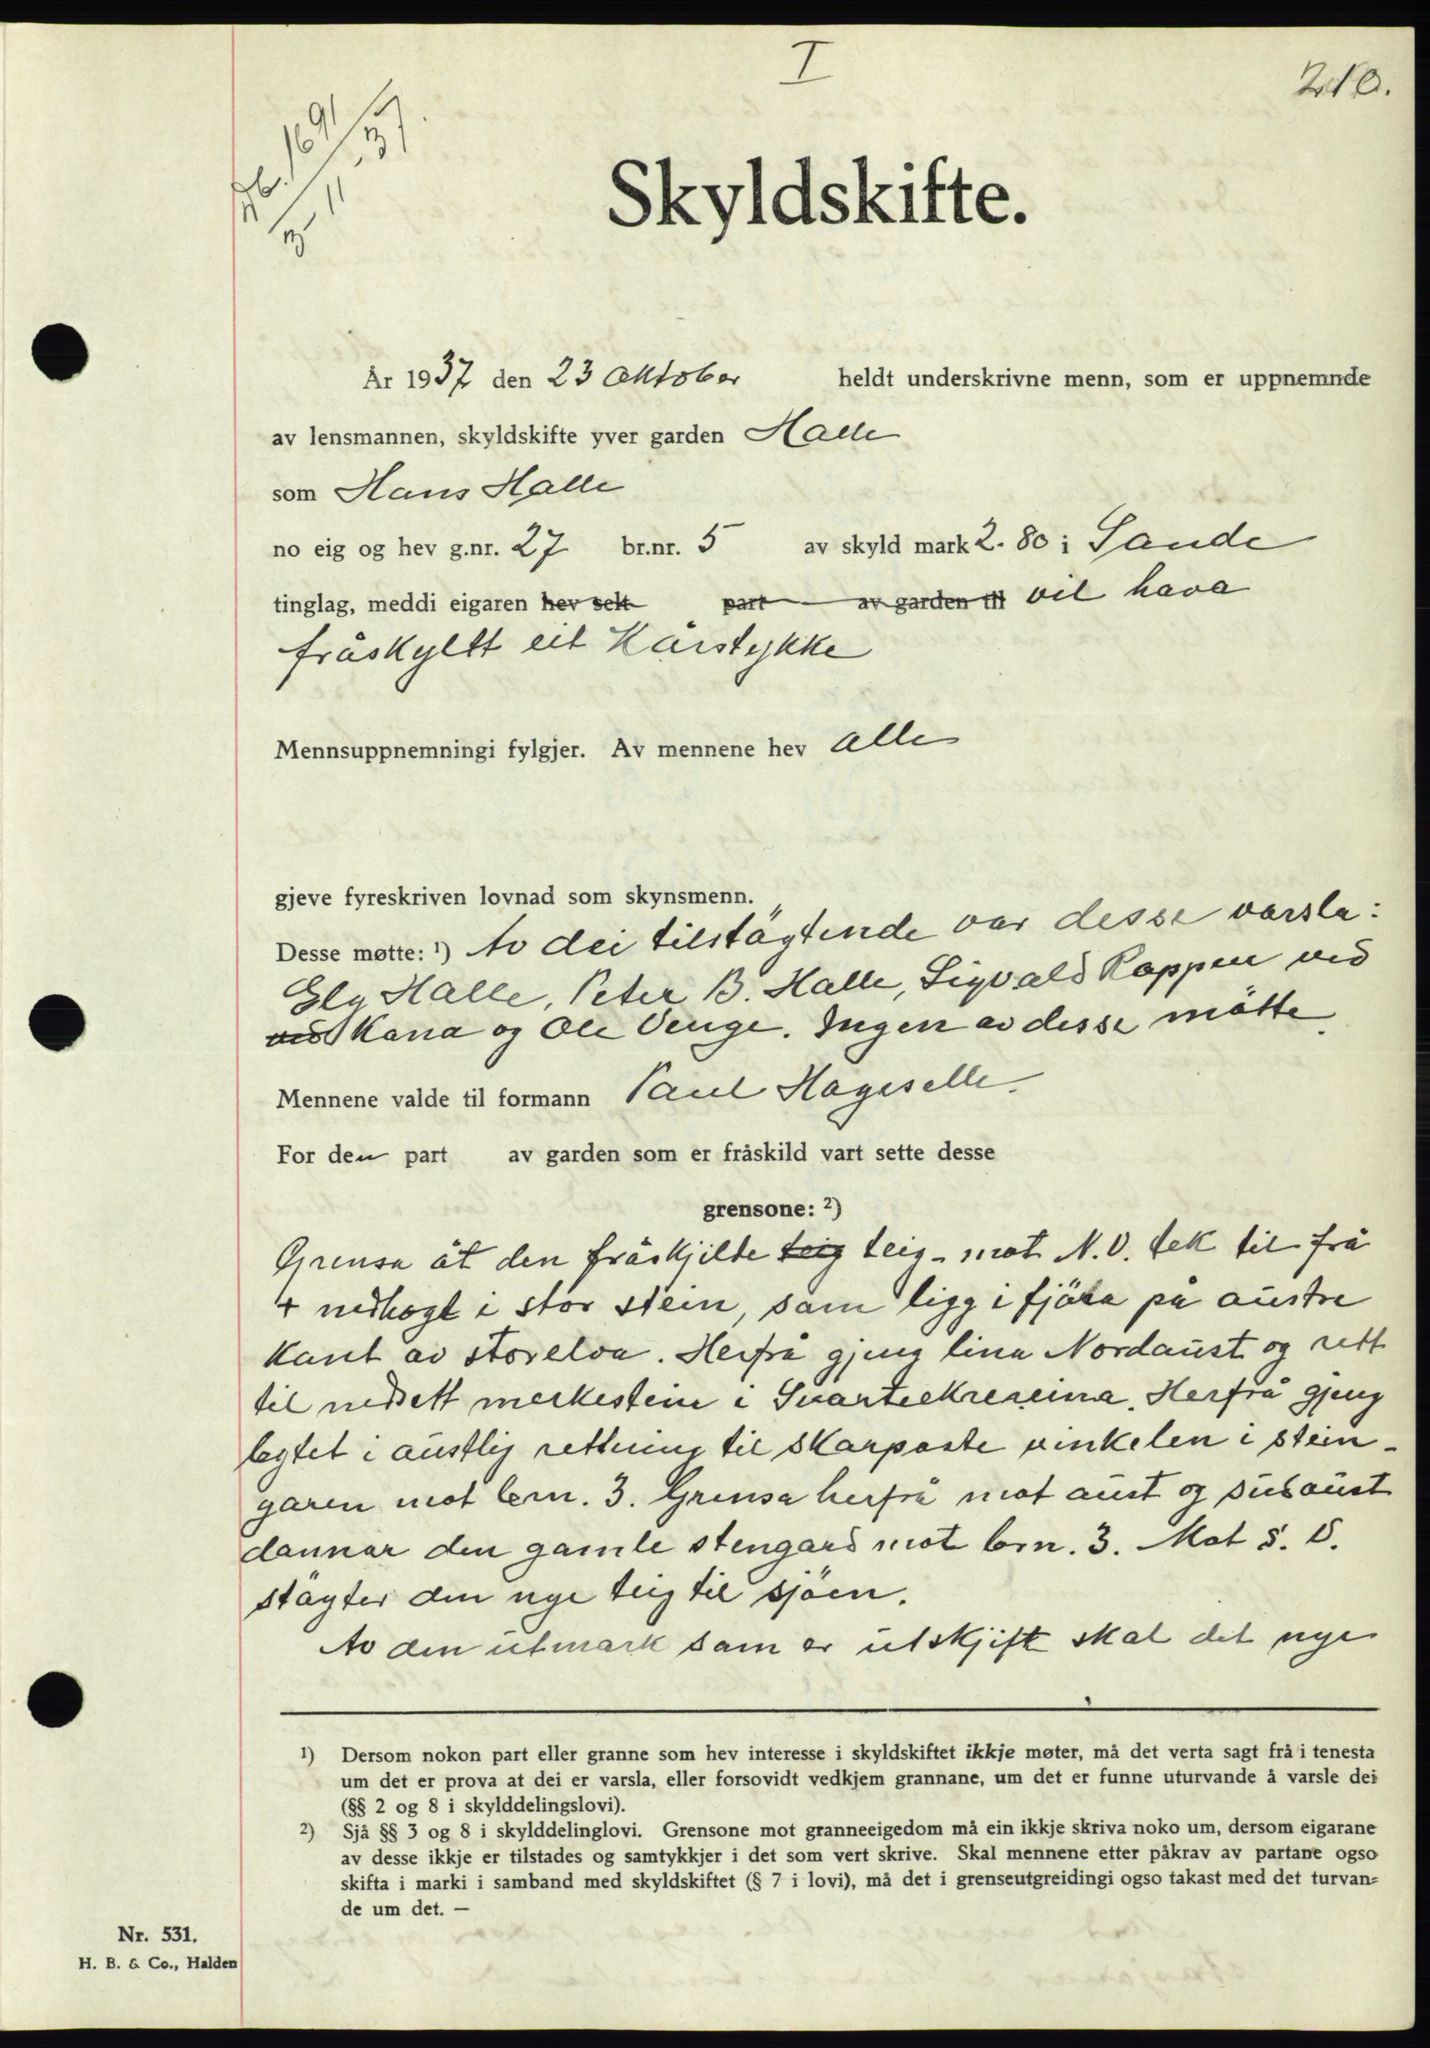 I
210.
1691/37.
Skyldskifte.
År 1937 den 23 Oktober heldt underskrivne menn, som er uppnemnde
av lensmannen, skyldskifte yver garden Halle
som Hans Halle
no eig og hev g.nr. 27 br.nr. 5 av skyld mark 2.80 i Sande
tinglag, meddi eigaren hev selt part av garden til vil hava
fråskyldt eit Kårstykke
Mennsuppnemningi fylgjer. Av mennene hev alle
gjeve fyreskriven lovnad som skynsmenn.
Desse møtte: ¹) Av dei tilstøytende var desse varsla:
Ely Halle, Peter B. Halle, Sigvald Koppen ved
ved Kana og Ole Venge. Ingen av desse møtte.
Mennene valde til formann Paul Hageselle.
For den part av garden som er fråskild vart sette desse
grensone: ²)
Grensa åt den fråskjilde teig teig mot N.V. tek til frå
+ nedhogt i stor stein, som ligg i fjøra på austre
kant av storelva. Herfrå gjeng lina Nordaust og rett
til nedsett merkestein i Svarteekrereina. Herfrå gjeng
bytet i austlig rettning til skarpaste vinkelen i stein-
garen mot brn. 3. Grensa herfrå mot aust og sudaust
dannar den gamle stengard mot brn. 3. Mot S. V.
støyter den nye teig til sjøen.
Av den utmark som er utskjift skal det nye
¹) Dersom nokon part eller granne som hev interesse i skyldskiftet ikkje møter, må det verta sagt frå i tenesta
um det er prova at dei er varsla, eller forsovidt vedkjem grannane, um det er funne uturvande å varsle dei
(§§ 2 og 8 i skylddelingslovi).
²) Sjå §§ 3 og 8 i skylddelinglovi. Grensone mot granneeigedom må ein ikkje skriva noko um, dersom eigarane
av desse ikkje er tilstades og samtykkjer i det som vert skrive. Skal mennene etter påkrav av partane ogso
skifta i marki i samband med skyldskiftet (§ 7 i lovi), må det i grenseutgreidingi ogso takast med det turvan=
de um det. —
Nr. 531.
H. B. & Co., Halden